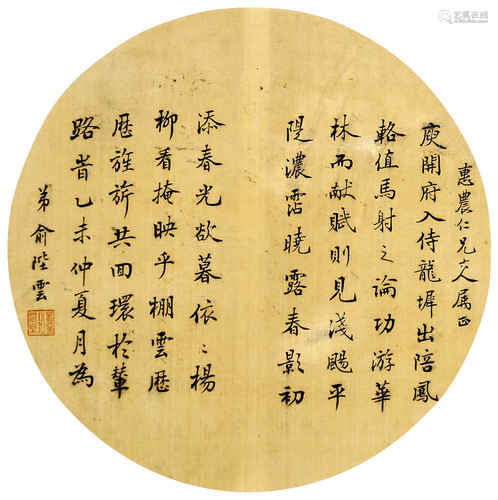 惠農仁兄大人属正
庾開府入侍龍墀出陪鳳
輅值馬射之論功游華
林而献賦則見淺颺平
隄濃霑曉露春影初
添春光欲暮依〻楊
柳看掩映乎棚雲歴
歴旌旂共囬環於輦
路旹乙未仲夏月為
弟俞陛雲